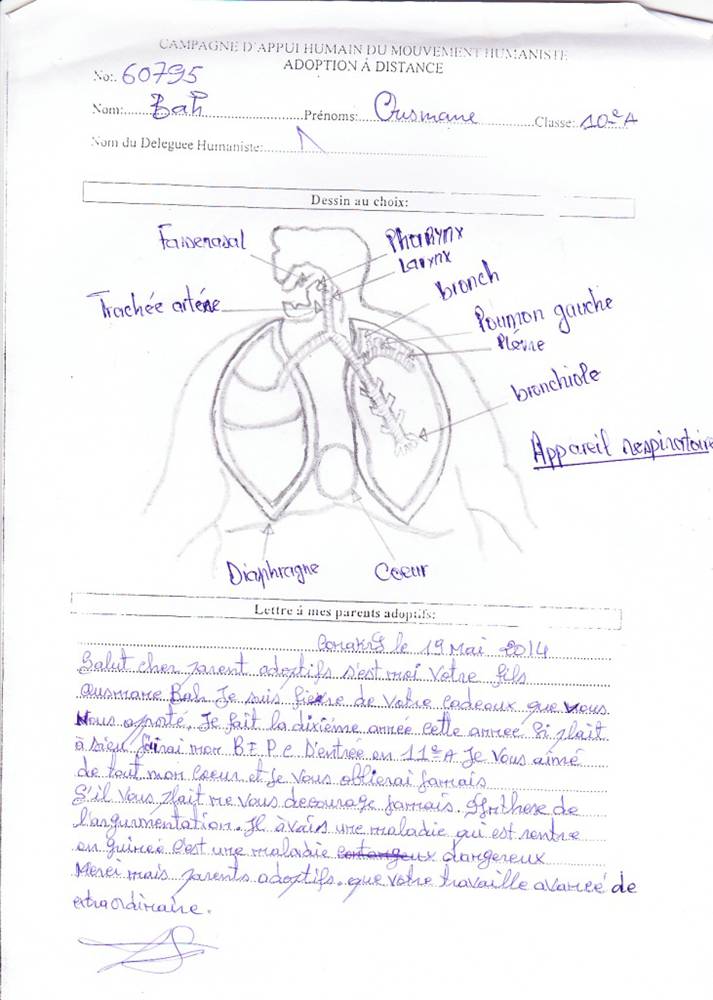 CAMPAGNE D'APPUI HUMAIN DU MOUVEMENT HUMANISTE
ADOPTION À DISTANCE
No: 60795
Nom: Bah Prénoms: Ousmane Classe: 10e A
Nom du Deleguee Humaniste:
Dessin au choix:
Pharynx
Larynx
bronch
Trachée artére
Poumon gauche
Plévre
bronchiole
Appareil respiratoire
Diaphragne
Coeur
Lettre à mes parents adoptifs:
Conakry le 19 Mai 2014
Salut cher parent adoptifs s'est moi votre fils
Ousmane Bah Je suis fière de votre cadeaux que vous
Nous aporté. Je fait la dixième année cette annee. Si plait
à Dieu J'airai mon B E P C D'entrée en 11e A Je Vous aimé
de tout mon Coeur et Je Vous oblierai Jamais
S'il Vous plait ne Vous decourage Jamais. Sinthese de
l'argurmentation. Il àvais une maladie qui est rentre
en Guineé C'est une maladie dangereux
Merci mais parents adoptifs. que votre travaille avanceé de
extraordinaire.